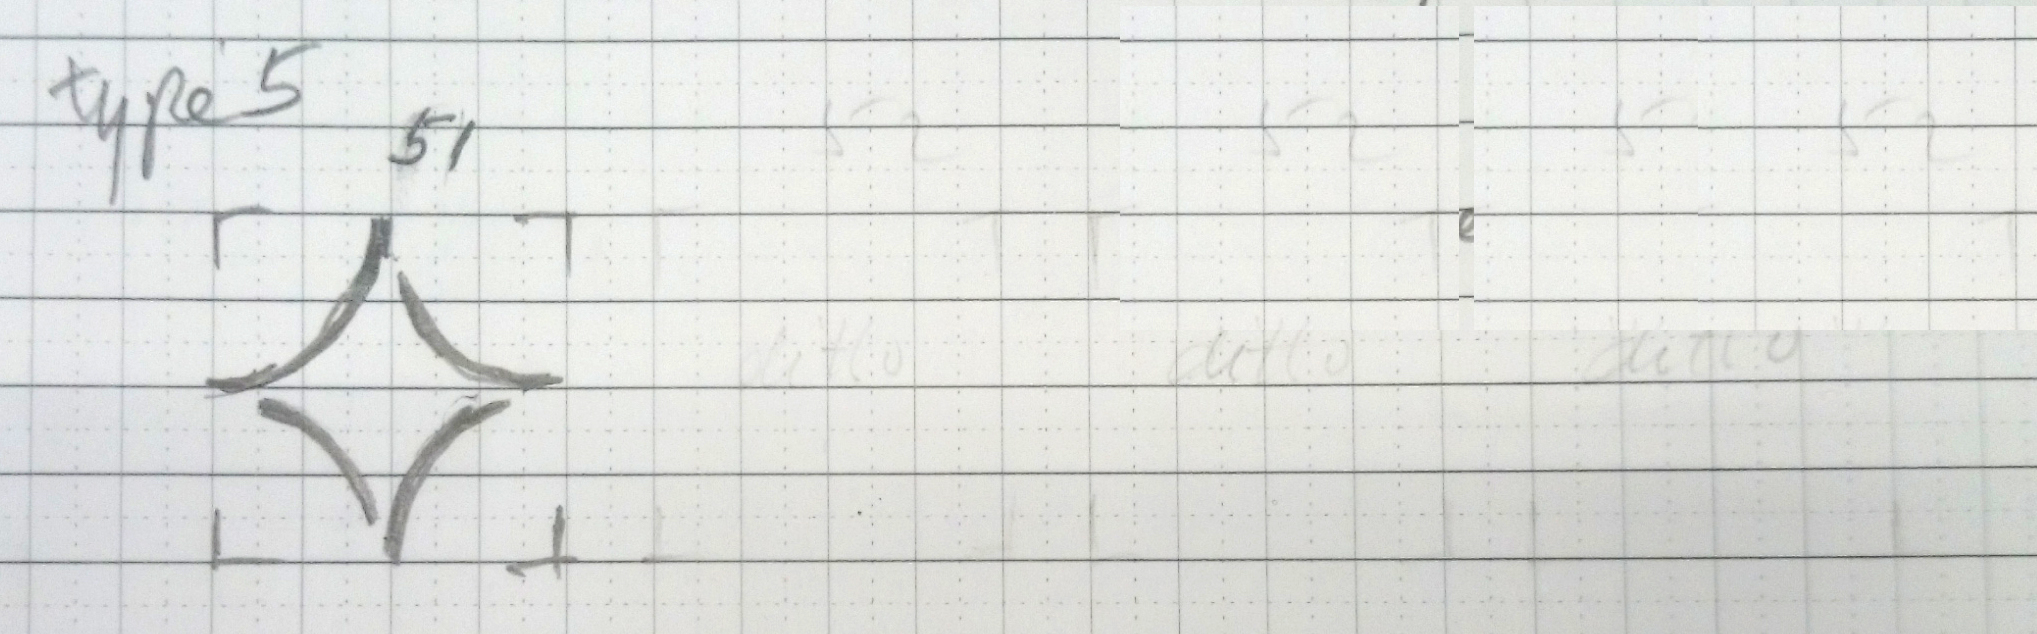 type 5
51
52 52 5 52
ditto ditto ditto